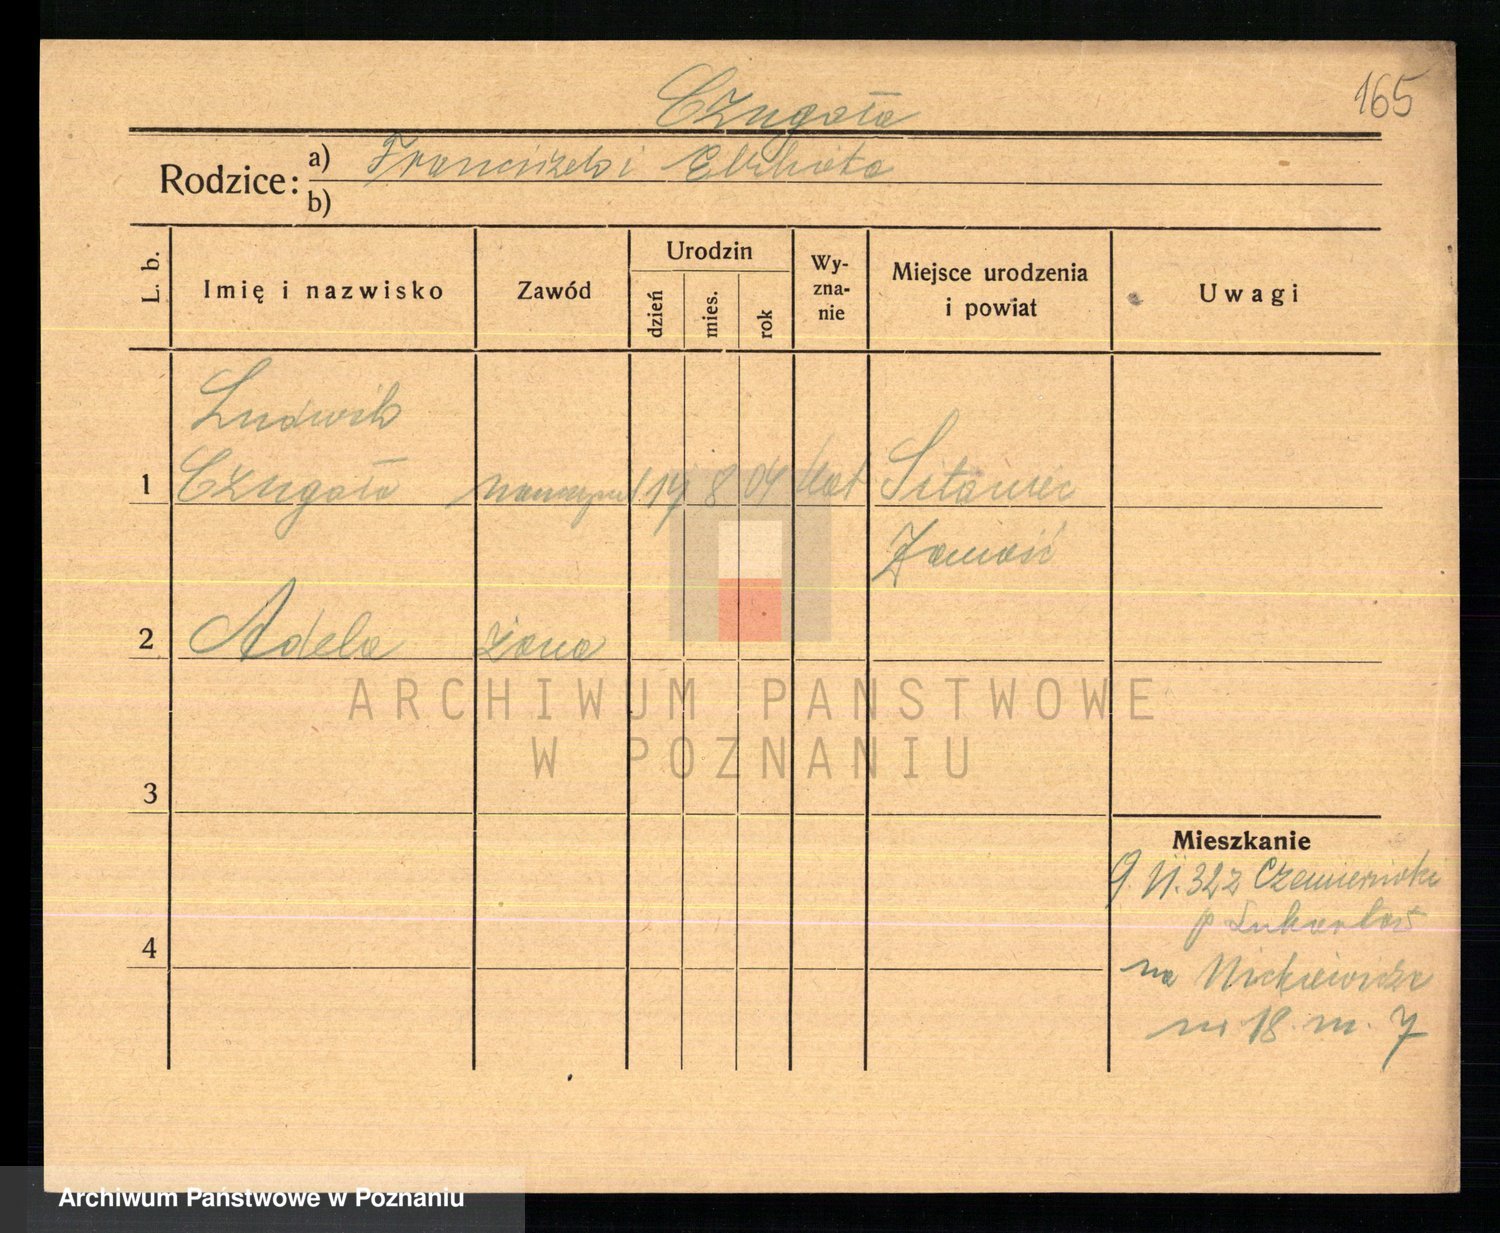 165
Czugała
Rodzice:
a) Franciszek i Elżbieta
b)
L. b.
Imię i nazwisko
Zawód
Urodzin
dzień
mies.
rok
Wy-
zna-
nie
Miejsce urodzenia
i powiat
Uwagi
Ludwik
1 Czugała 8 04 kat Sitaniec
Zamość
2 Adela żona
3
4
Mieszkanie
9. VI. 32 z Czemiernicki
p Lubartów
na Mickiewicza
nr 18. m. 7
ARCHIWUM PAŃSTWOWE
W POZNANIU
Archiwum Państwowe w Poznaniu